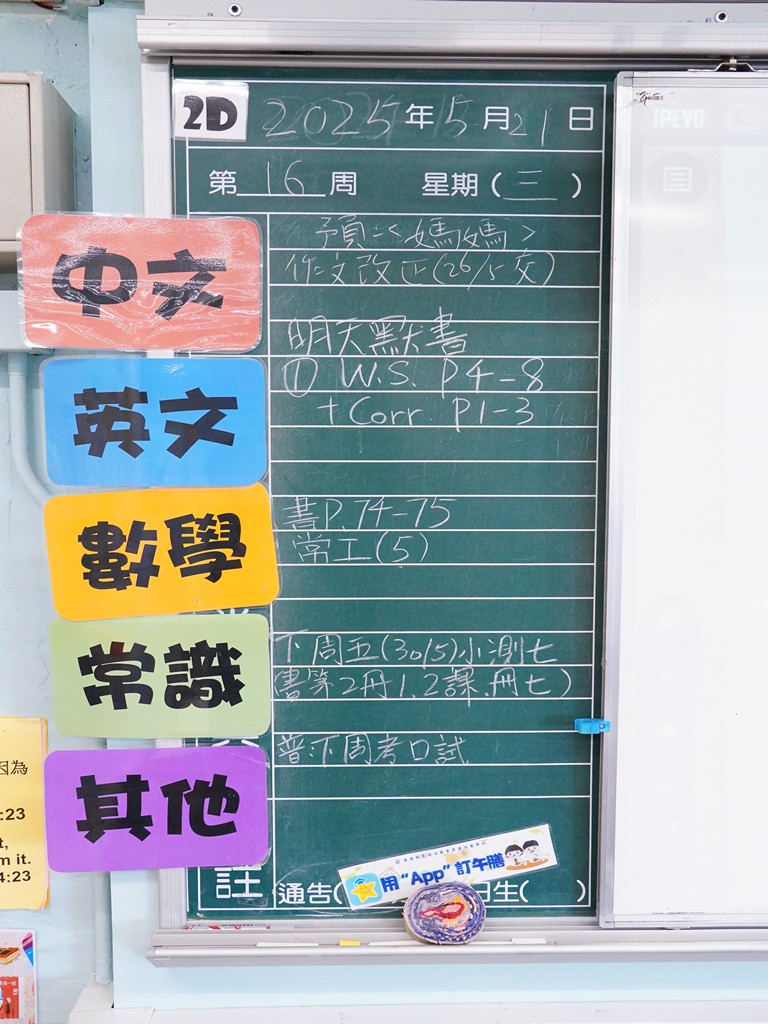 2D 2025年5月21日
第16周 星期(三)
中文
預:<媽媽>
作文改正(26/5交)
明天默書
英文
① W.S. P4-8
+Corr. P1-3
數學
書P.74-75
常工(5)
常識
下周五(30/5)小測七
(書第2冊1.2課.冊七)
其他
普:下周考口試
註 通告(
日生( )
用“App”訂午膳
IPEVO
因為
:23
t,
m it.
4:23